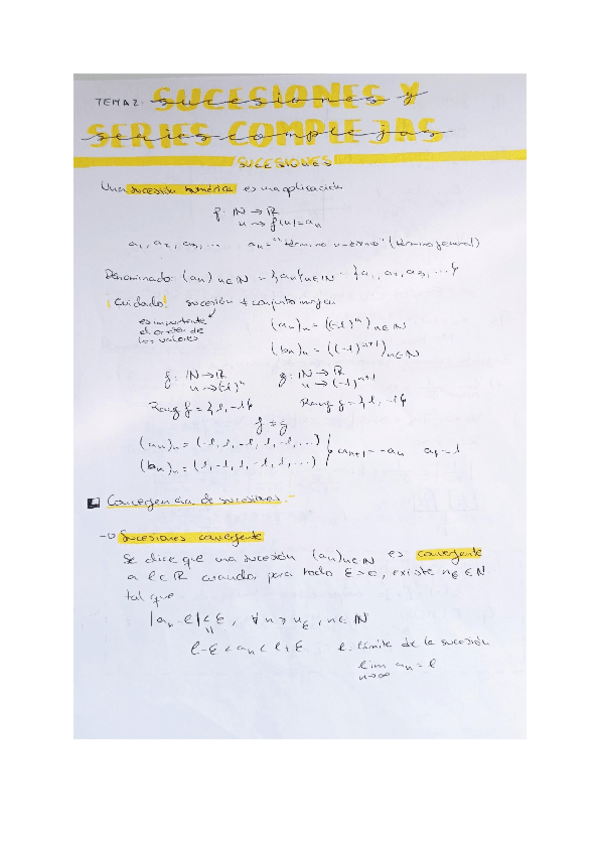 TEMA 2: SUCESIONES Y
SERIES COMPLEJAS
SUCESIONES
Una sucesión numérica es una aplicación
f: ℕ → ℝ
n → f(n) = aₙ
a₁, a₂, a₃, ... aₙ = "término n-ésimo" (término general)
Denominado: (aₙ)ₙ∈ℕ = {aₙ}ₙ∈ℕ = {a₁, a₂, a₃, ...}
¡Cuidado! sucesión ≠ conjunto imagen
es importante
el orden de
los valores
(aₙ)ₙ = ((-1)ⁿ)ₙ∈ℕ
(bₙ)ₙ = ((-1)ⁿ⁺¹)ₙ∈ℕ
f: ℕ → ℝ g: ℕ → ℝ
n → (-1)ⁿ n → (-1)ⁿ⁺¹
Rang f = {1, -1} Rang g = {1, -1}
f ≠ g
(aₙ)ₙ = (-1, 1, -1, 1, -1, ...)
(bₙ)ₙ = (1, -1, 1, -1, 1, ...)
aₙ₊₁ = -aₙ
Convergencia de sucesiones.-
→ Sucesiones convergente
Se dice que una sucesión (aₙ)ₙ∈ℕ es convergente
a l ∈ ℝ cuando para todo ε > 0, existe n_ε ∈ ℕ
tal que
|aₙ - l| < ε, ∀n ≥ n_ε, n ∈ ℕ
l - ε < aₙ < l + ε l. límite de la sucesión
lim aₙ = l
n→∞